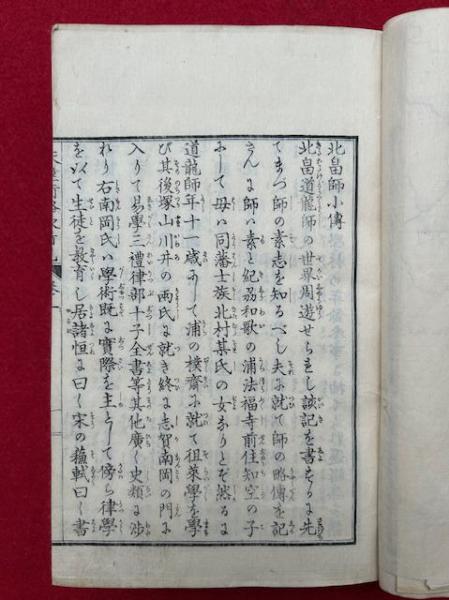 北畠師小傳
北畠道龍師の世界周遊せられし談記を書するに先
てまづ師の素志を知るべし夫に就て師の略傳を記
さんに師ハ素と紀刕和歌の浦法福寺前住知空の子
にして母ハ同藩士族北村某氏の女なりとぞ然るに
道龍師年十一歳にして浦の樸齋に就て徂萊學を學
び其後塚山川井の兩氏に就き終に志賀南岡の門に
入りて易學三禮律部十子全書等其他廣く史類に渉
れり右南岡氏ハ學術既に實際を主として傍ら律學
を以て生徒を敎育し居諸恒に曰く宋の蘓軾曰く書